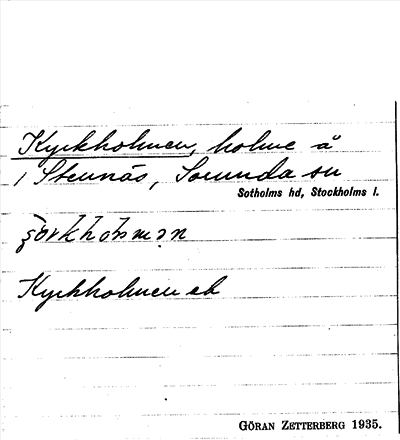 Kyrkholmen, holme å
i Stennäs, Sorunda sn
Sotholms hd, Stockholms l.
Kyrkholmen ek
GÖRAN ZETTERBERG 1935.